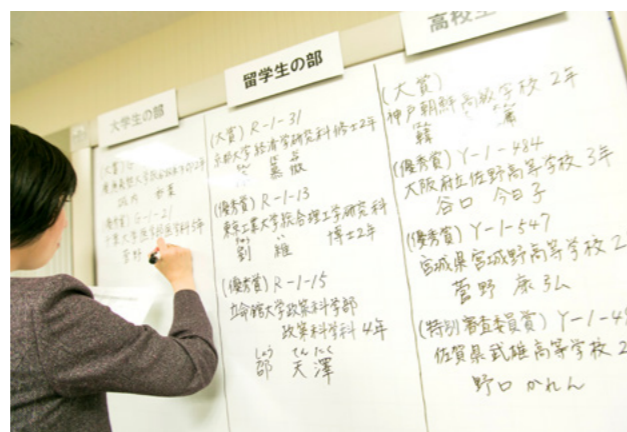 大学生の部
(大賞)
慶應義塾大学総合政策学部2年
(優秀賞) G-1-21
千葉大学医学部医学科5年
菅野
留学生の部
(大賞) R-1-31
京都大学経済学研究科修士2年
(優秀賞) R-1-13
東京工業大学総合理工学研究科
りゅう
劉 博士2年
(優秀賞) R-1-15
立命館大学政策科学部
政策科学科 4年
しょう てんたく
邵 天澤
高校生
(大賞)
神戸朝鮮高級学校 2年
韓
(優秀賞) Y-1-484
大阪府立佐野高等学校 3年
谷口 今日子
(優秀賞) Y-1-547
宮城県宮城野高等学校 2
菅野 康弘
(特別審査委員賞) Y-1-4
佐賀県武雄高等学校 2
野口 かれん